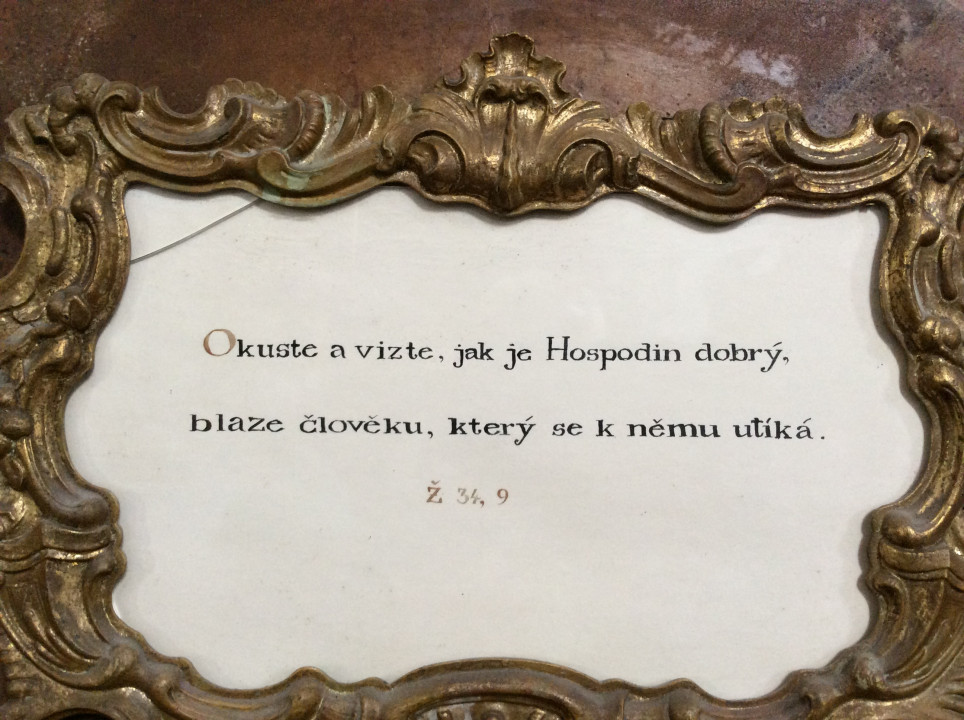 Okuste a vizte, jak je Hospodin dobrý,
blaze člověku, který se k němu utíká.
Ž 34, 9